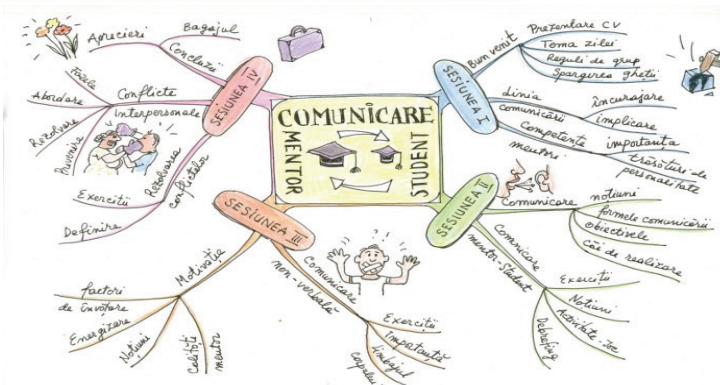 COMUNICARE
MENTOR
STUDENT
SESIUNEA I
Bun venit
Prezentare CV
Tema zilei
Reguli de grup
Spargerea gheții
Linia
comunicării
încurajare
implicare
Competențe
mentori
importanța
trăsături de
personalitate
SESIUNEA II
Comunicare
noțiuni
formele comunicării
obiectivele
căi de realizare
Comunicare
mentor-student
Exerciții
Noțiuni
Activitate-joc
Debrefing
SESIUNEA III
Comunicare
non-verbală
Exerciții
Importanță
limbajul
corpului
Motivație
factori
de învățare
Energizare
Noțiuni
Calități
mentor
SESIUNEA IV
Concluzii
Bagajul
Aprecieri
Conflicte
Interpersonale
Fazele
Abordare
Rezolvare
Prevenire
Rezolvarea
conflictelor
Exerciții
Definire